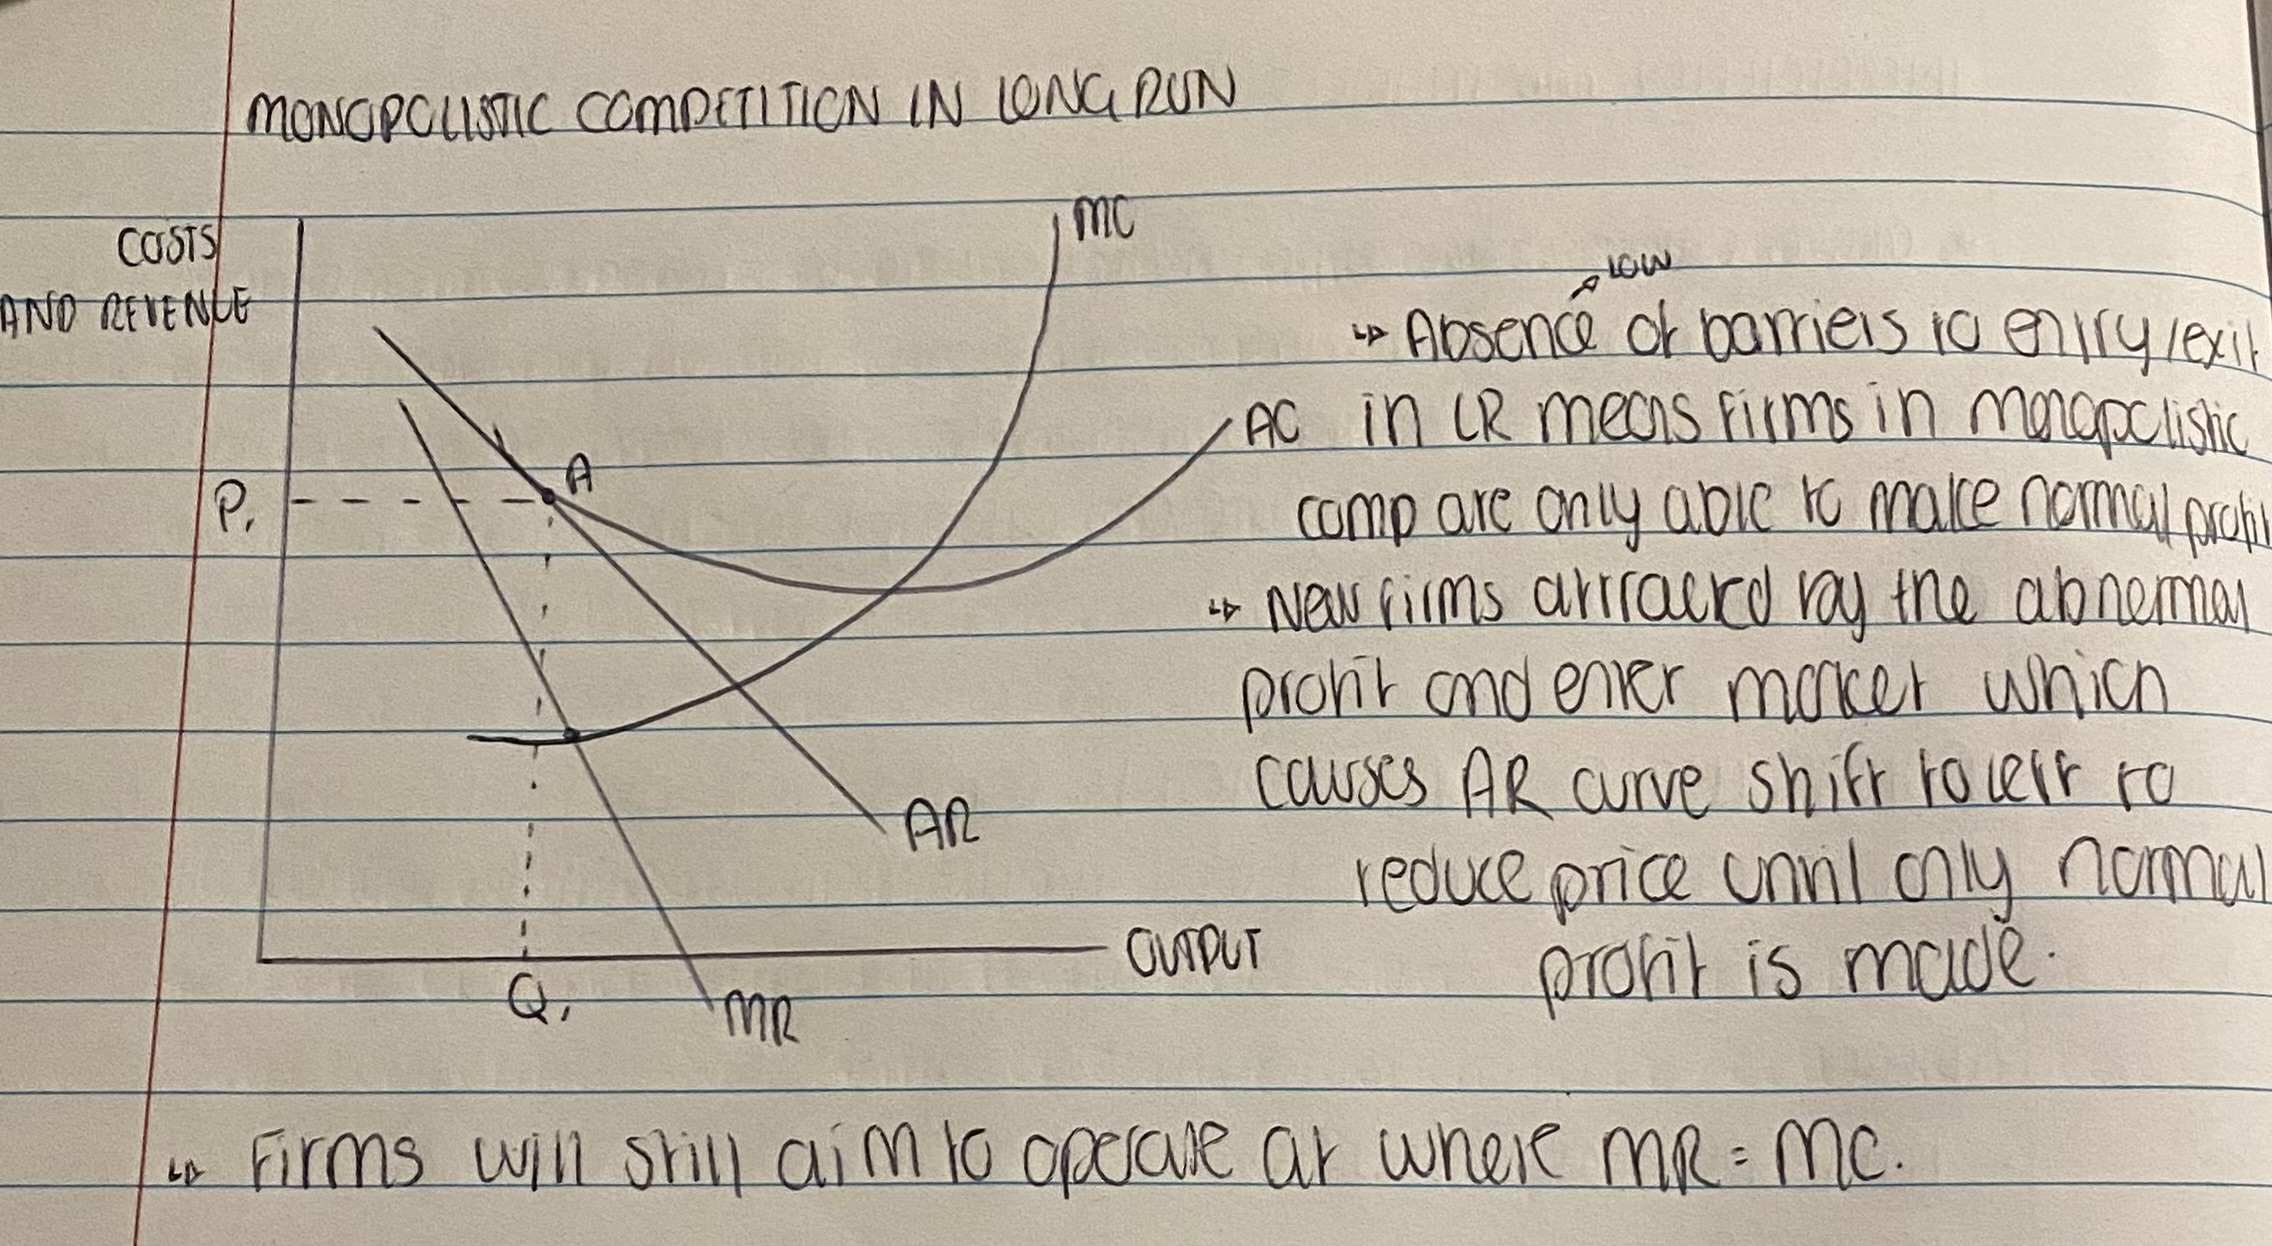 MONOPOLISTIC COMPETITION IN LONG RUN
COSTS
AND REVENUE
MC
AC
A
P1
AR
OUTPUT
Q1
MR
low
↳ Absence of barriers to entry/exit
in LR means firms in monopolistic
comp are only able to make normal profit
↳ New firms attracted by the abnormal
profit and enter market which
causes AR curve shift to left to
reduce price until only normal
profit is made.
↳ Firms will still aim to operate at where MR = MC.